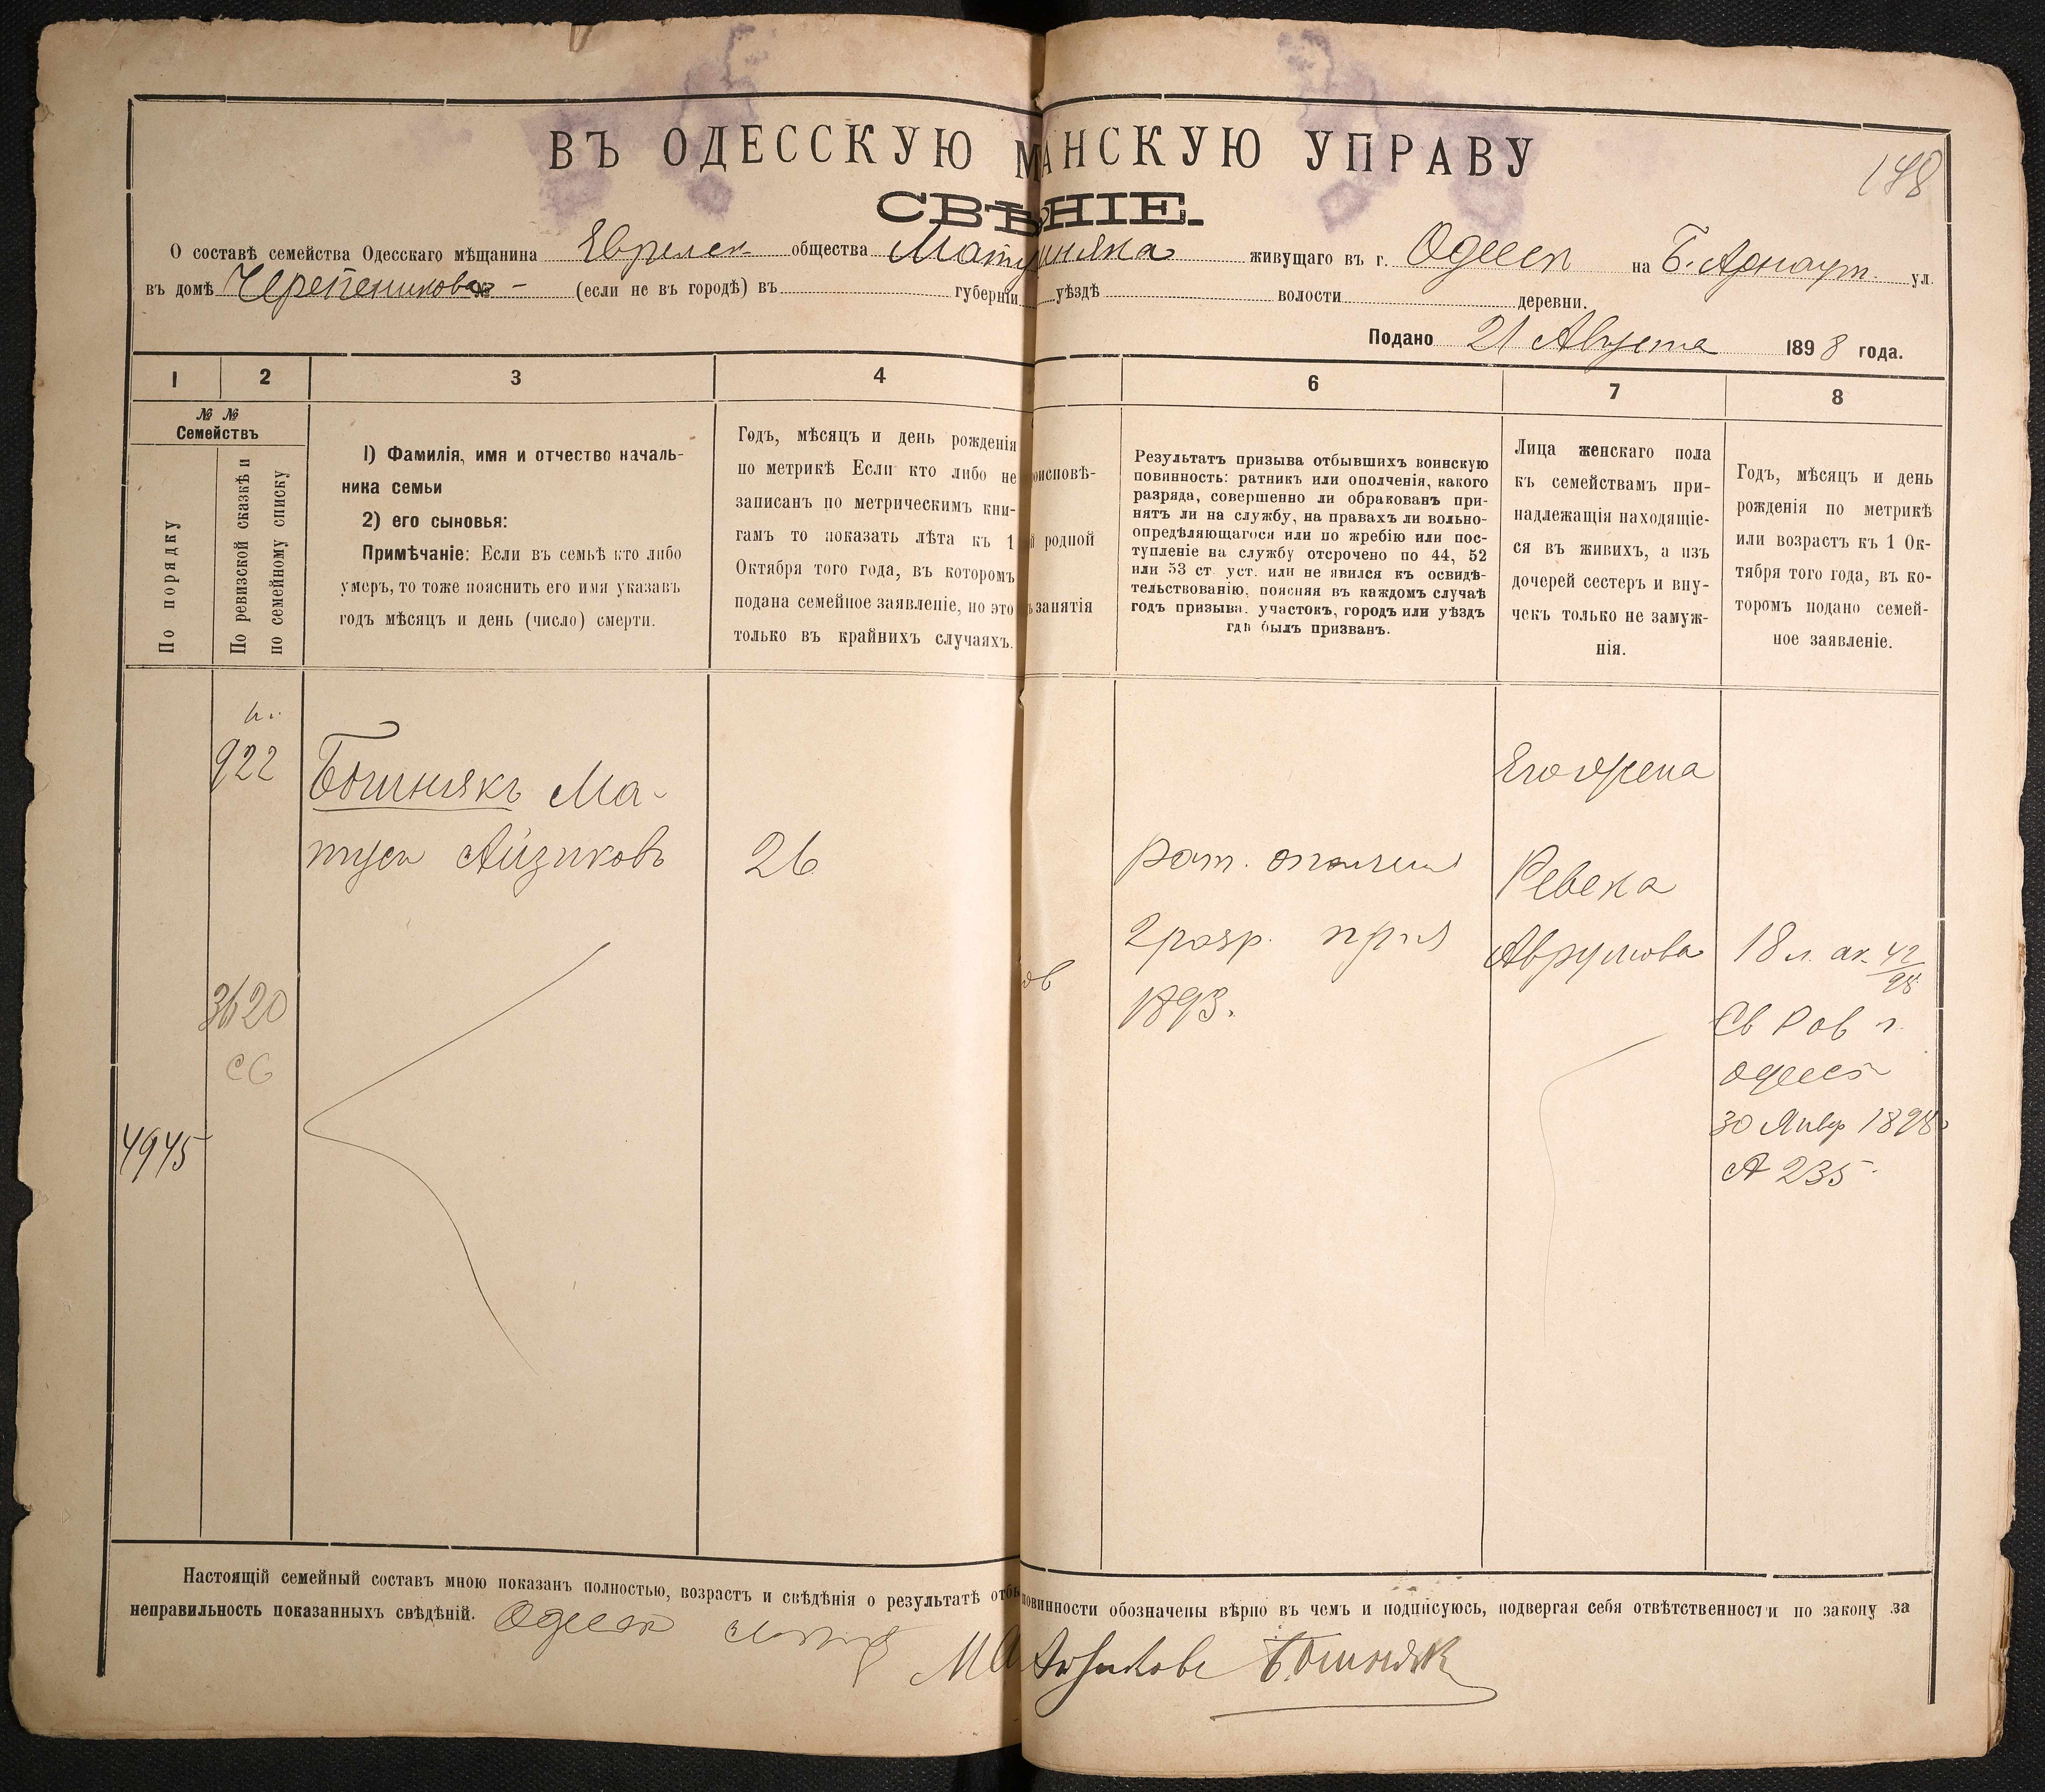 148
ВЪ ОДЕССКУЮ МАНСКУЮ УПРАВУ
СВѢНІЕ.
О составѣ семейства Одесскаго мѣщанина Еврейск общества Мату шняка живущаго въ г. Одессѣ на Б. Арнаут. ул.
въ домѣ Черепенникова - (если не въ городѣ) въ губерніи уѣздѣ волости деревни.
Подано 21 Августа 1898 года.
1 2 3 4 6 7 8
№ №
Семействъ
По порядку
По ревизской сказкѣ и
по семейному списку
1) Фамилія, имя и отчество началь-
ника семьи
2) его сыновья:
Примѣчаніе: Если въ семьѣ кто либо
умеръ, то тоже пояснить его имя указавъ
годъ мѣсяцъ и день (число) смерти.
Годъ, мѣсяцъ и день рожденія
по метрикѣ Если кто либо не
записанъ по метрическимъ кни-
гамъ то показать лѣта къ 1
Октября того года, въ которомъ
подана семейное заявленіе, но это
только въ крайнихъ случаяхъ.
оисповѣ-
й родной
ъ занятія
Результатъ призыва отбывшихъ воинскую
повинность: ратникъ или ополченія, какого
разряда, совершенно ли обракованъ при-
нятъ ли на службу, на правахъ ли вольно-
опредѣляющагося или по жребію или пос-
тупленіе на службу отсрочено по 44, 52
или 53 ст уст. или не явился къ освидѣ-
тельствованію, поясняя въ каждомъ случаѣ
годъ призыва, участокъ, городъ или уѣздъ
гдѣ былъ призванъ.
Лица женскаго пола
къ семействамъ при-
надлежащія находящіе-
ся въ живихъ, а изъ
дочерей сестеръ и вну-
чекъ только не замуж-
нія.
Годъ, мѣсяцъ и день
рожденія по метрикѣ
или возрастъ къ 1 Ок-
тября того года, въ ко-
торомъ подано семей-
ное заявленіе.
922
Бошнякъ Ма-
туси Айзиковъ
26
рат. ополчения
2 разр. приз
1893.
Его жена
Ревека
Аврумова
18 л. ак. 42/98
Св Рав г.
Одесс
30 Янвр 1898
А 235
3620
СС
4945
ов
Настоящій семейный составъ мною показанъ полностью, возрастъ и свѣдѣнія о результатѣ отбы повинности обозначены вѣрно въ чемъ и подписуюсь, подвергая себя отвѣтственности по закону за
неправильность показанныхъ свѣдѣній. Одесск
Бошняк